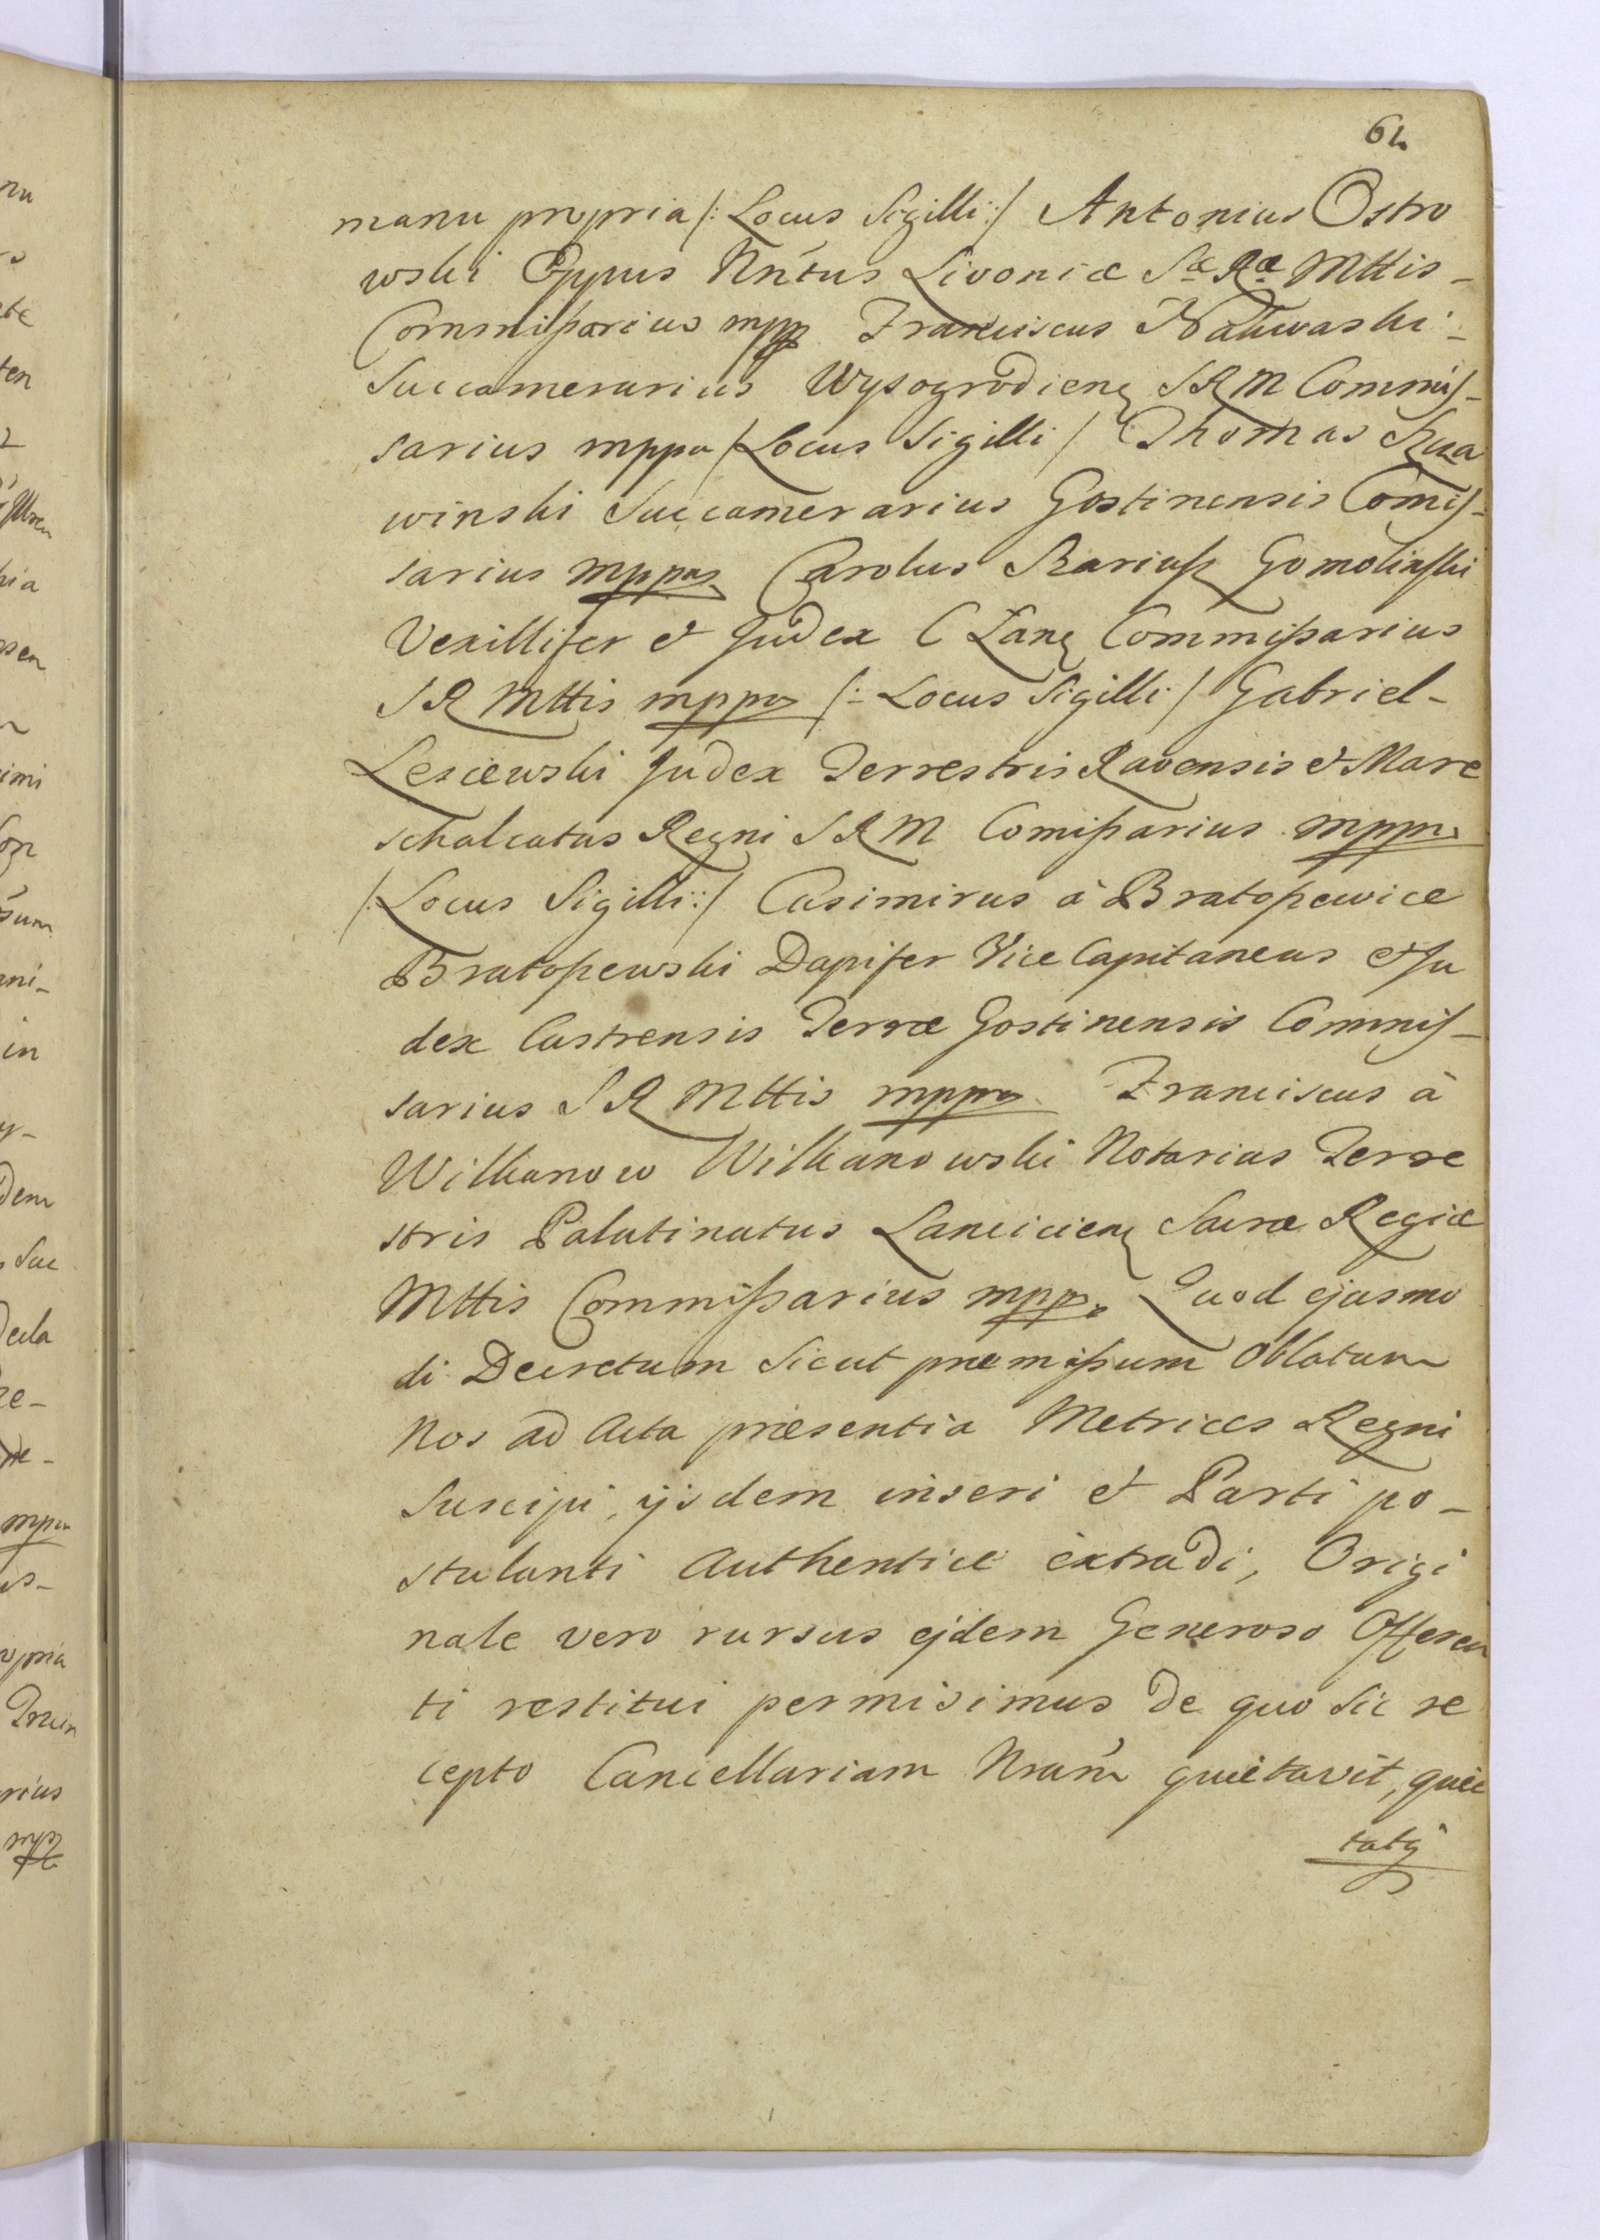 62.
manu propria /: Locus Sigilli :/ Antonius Ostro
wski Eppus Nri'tus Livoniæ Sæ Ræ Mttis -
Commißarius mpp Franciscus Nakwaski -
Succamerarius Wysogrodien SRM Commis-
sarius mppa / Locus Sigilli / Thomas
winski Succamerarius Gostinensis Comis-
sarius mppa Carolus Gomolinski
Vexillifer et Judex C Lan Commißarius
SR Mttis mppa /: Locus Sigilli / Gabriel -
Lescewski Judex Terrestris Ravensis et Mare
schalcatus Regni SRM Comißarius mppa
/: Locus Sigilli :/ Casimirus à Bratoßewice
Bratoßewski Dapifer Vice Capitaneus et Ju
dex Castrensis Terræ Gostinensis Commis-
sarius SR Mttis mppa Franciscus à
Wilkanow Wilkanowski Notarius Terre
stris Palatinatus Lancicien Sacræ Regiæ
Mttis Commißarius mppa Quod ejusmo
di Decretum sicut præmißum Oblatum
Nos ad Acta præsentia Metrices Regni
Suscipi, ijsdem inseri et Parti po-
stulanti Authentice extradi, Origi
nale vero rursus ejdem Generoso Offeren
ti restitui permisimus De quo sic re
cepto Cancellariam Nram quietavit, quie